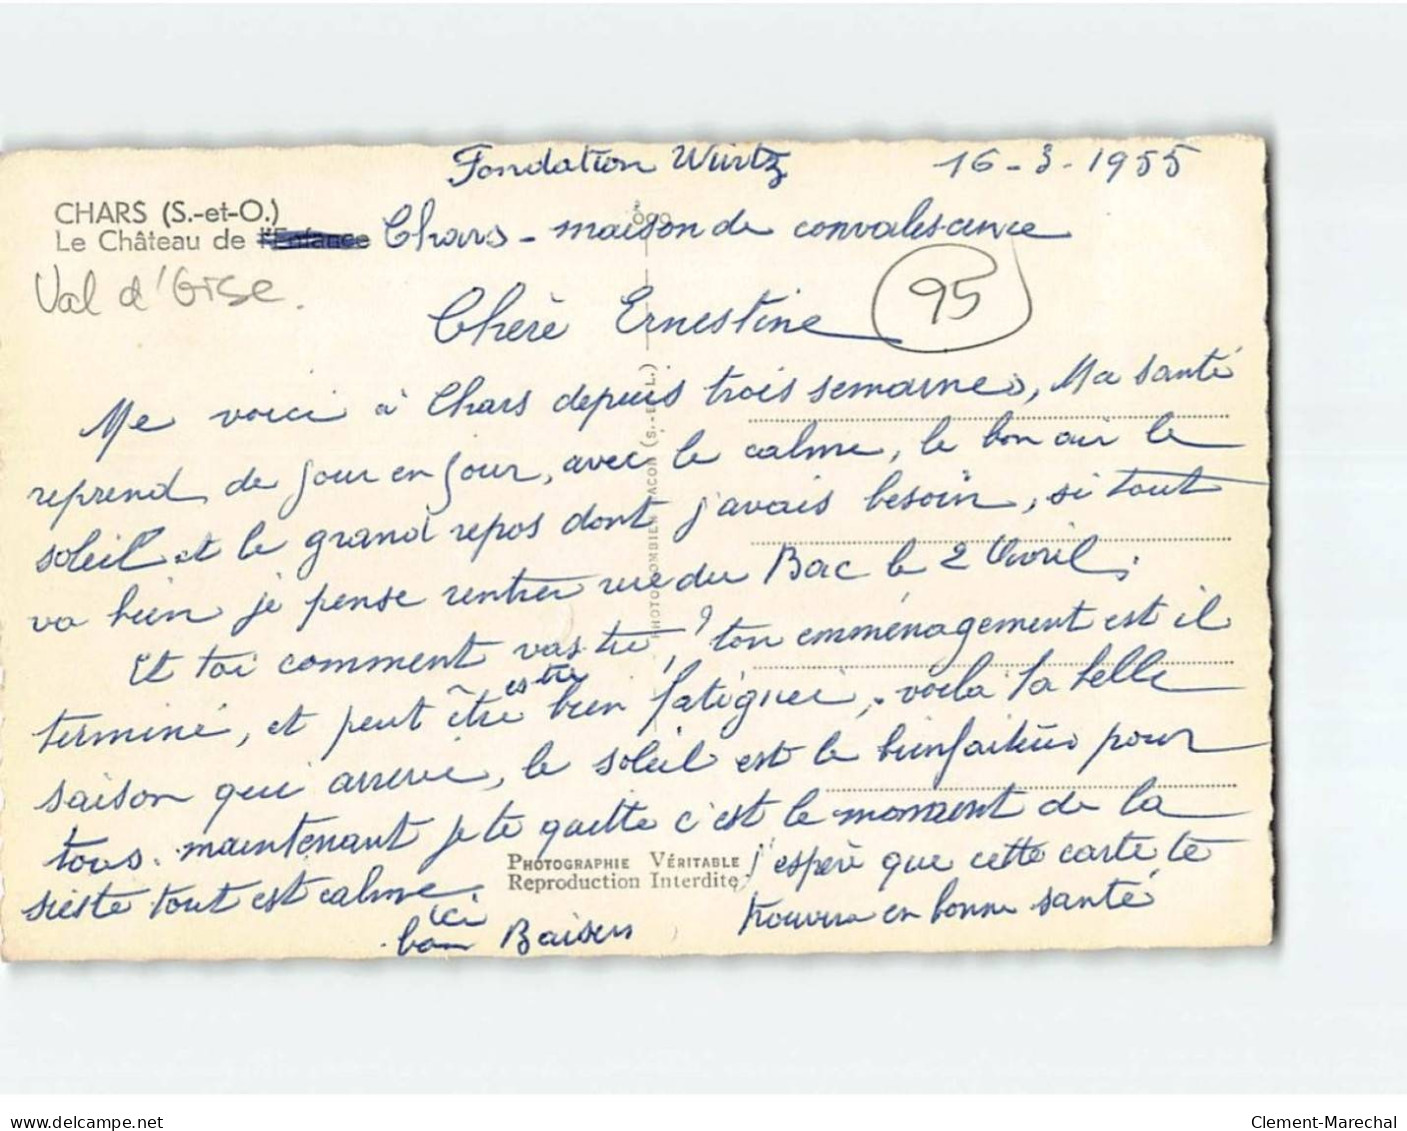 Fondation Würtz 16-3-1955
CHARS (S.-et-O.)
Le Château de l'Enfance Chars - maison de convalescence
Val d'Oise.
95
Chère Ernestine
Me voici à Chars depuis trois semaines, Ma santé
reprend de jour en jour, avec le calme, le bon air le
soleil et le grand repos dont j'avais besoin, si tout
va bien je pense rentrer rue du Bac le 2 Avril.
Et toi comment vas tu, ? ton emménagement est il
terminé, et peut être es tu bien fatiguée, voila la belle
saison qui arrive, le soleil est le bienfaiteur pour
tous. maintenant je te quitte c'est le moment de la
sieste tout est calme ici. j'espère que cette carte te
trouvera en bonne santé
bons Baisers
PHOTOGRAPHIE VÉRITABLE
Reproduction Interdite
www.delcampe.net
Clement-Marechal